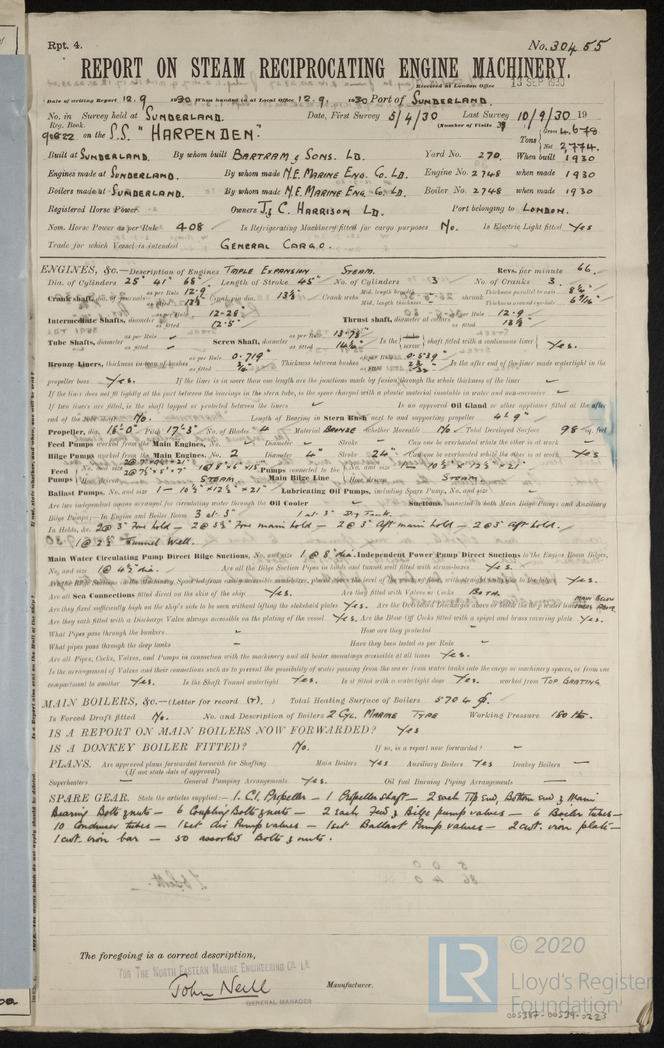 Rpt. 4. No. 30455
REPORT ON STEAM RECIPROCATING ENGINE MACHINERY.
Received at London Office 13 SEP 1930
Date of writing Report 12.9 1930 When handed in at Local Office 12.9 1930 Port of SUNDERLAND.
No. in Survey held at SUNDERLAND. Date, First Survey 5/4/30 Last Survey 10/9/30 19
Reg. Book. (Number of Visits 39
90822 on the S.S. "HARPENDEN". Tons Gross 4,678 Net 2,774.
Built at SUNDERLAND. By whom built BARTRAM & SONS. LD. Yard No. 270. When built 1930
Engines made at SUNDERLAND. By whom made N.E. MARINE ENG. CO. LD. Engine No. 2748 when made 1930
Boilers made at SUNDERLAND. By whom made N.E. MARINE ENG. CO. LD. Boiler No. 2748 when made 1930
Registered Horse Power Owners J & C. HARRISON LD. Port belonging to LONDON.
Nom. Horse Power as per Rule 408 Is Refrigerating Machinery fitted for cargo purposes No. Is Electric Light fitted Yes
Trade for which Vessel is intended GENERAL CARGO.
ENGINES, &c.—Description of Engines TRIPLE EXPANSION STEAM. Revs. per minute 66.
Dia. of Cylinders 25" 41" 68" Length of Stroke 45" No. of Cylinders 3 No. of Cranks 3.
Crank shaft, dia. of journals as per Rule 12.9 as fitted 13¼ Crank pin dia. 13½" Crank webs Mid. length breadth Mid. length thickness shrunk Thickness parallel to axis 8¼" Thickness around eyehole 6 9/16"
Intermediate Shafts, diameter as per Rule 12.28" as fitted 12.5" Thrust shaft, diameter at collars as per Rule 12.9" as fitted 13¼"
Tube Shafts, diameter as per Rule — as fitted — Screw Shaft, diameter as per Rule 13.78" as fitted 14½" Is the tube screw shaft fitted with a continuous liner Yes.
Bronze Liners, thickness in way of bushes as per Rule 0.719" as fitted ¾" Thickness between bushes as per Rule 0.539" as fitted Is the after end of the liner made watertight in the
propeller boss Yes. If the liner is in more than one length are the junctions made by fusion through the whole thickness of the liner —
If the liner does not fit tightly at the part between the bearings in the stern tube, is the space charged with a plastic material insoluble in water and non-corrosive —
If two liners are fitted, is the shaft lapped or protected between the liners — Is an approved Oil Gland or other appliance fitted at the after
end of the No. Length of Bearing in Stern Bush next to and supporting propeller 4'.9"
Propeller, dia. 16'-0" Pitch 17'-3" No. of Blades 4 Material BRONZE whether Moveable No Total Developed Surface 98 sq. feet
Feed Pumps worked from the Main Engines, No. — Diameter — Stroke — Can one be overhauled while the other is at work —
Bilge Pumps worked from the Main Engines, No. 2 Diameter 4" Stroke 24" Can one be overhauled while the other is at work Yes
Feed Pumps No. and size How driven STEAM Pumps connected to the Main Bilge Line No. and size 1 — 10½" × 12½" × 21" How driven STEAM.
Ballast Pumps, No. and size 1 — 10½" × 12½" × 21" Lubricating Oil Pumps, including Spare Pump, No. and size —
Are two independent means arranged for circulating water through the Oil Cooler — Suctions, connected to both Main Bilge Pumps and Auxiliary
Bilge Pumps;—In Engine and Boiler Room 3 at 3" 1 at 3" Dry Tank.
In Holds, &c. 2@3" Fore hold — 2@3½" Fore main hold — 2@3" Aft main hold — 2@3" Aft hold.
1 @ 2½ Tunnel Well.
Main Water Circulating Pump Direct Bilge Suctions, No. and size 1 @ 8" dia. Independent Power Pump Direct Suctions to the Engine Room Bilges,
No. and size 1 @ 4½" dia. Are all the Bilge Suction Pipes in holds and tunnel well fitted with strum-boxes Yes.
Are the Bilge Suctions in the Machinery Space Yes.
Are all Sea Connections fitted direct on the skin of the ship Yes. Are they fitted with Valves or Cocks BOTH.
Are they fixed sufficiently high on the ship's side to be seen without lifting the stokehold plates Yes. Are the Overboard Discharges above or below the deep water line
Are they each fitted with a Discharge Valve always accessible on the plating of the vessel Yes. Are the Blow Off Cocks fitted with a spigot and brass covering plate Yes.
What Pipes pass through the bunkers — How are they protected —
What pipes pass through the deep tanks — Have they been tested as per Rule —
Are all Pipes, Cocks, Valves, and Pumps in connection with the machinery and all boiler mountings accessible at all times Yes.
Is the arrangement of Valves and their connections such as to prevent the possibility of water passing from the sea or from water tanks into the cargo or machinery spaces, or from one
compartment to another Yes. Is the Shaft Tunnel watertight Yes. Is it fitted with a watertight door Yes. worked from TOP GRATING
MAIN BOILERS, &c.—(Letter for record (r). ) Total Heating Surface of Boilers 5704
Is Forced Draft fitted No. No. and Description of Boilers 2 CYL. MARINE TYPE Working Pressure 180 lbs.
IS A REPORT ON MAIN BOILERS NOW FORWARDED? Yes
IS A DONKEY BOILER FITTED? No. If so, is a report now forwarded? —
PLANS. Are approved plans forwarded herewith for Shafting — Main Boilers Yes Auxiliary Boilers Yes Donkey Boilers —
(If not state date of approval)
Superheaters — General Pumping Arrangements Yes. Oil fuel Burning Piping Arrangements —
SPARE GEAR. State the articles supplied:— 1 C.I. Propeller — 1 Propeller shaft — 2 each Top end, Bottom end & Main
Bearing Bolts & nuts — 6 Coupling Bolts & nuts — 2 each Feed & Bilge pump valves — 6 Boiler tubes —
10 Condenser tubes — 1 set Air Pump valves — 1 set Ballast Pump valves — 2 cwt. iron plate —
1 cwt. iron bar — 50 assorted Bolts & nuts.
The foregoing is a correct description,
FOR THE NORTH EASTERN MARINE ENGINEERING CO. LD.
John Neill Manufacturer.
GENERAL MANAGER
LR © 2020
Lloyd's Register
Foundation
005387-00539-0223